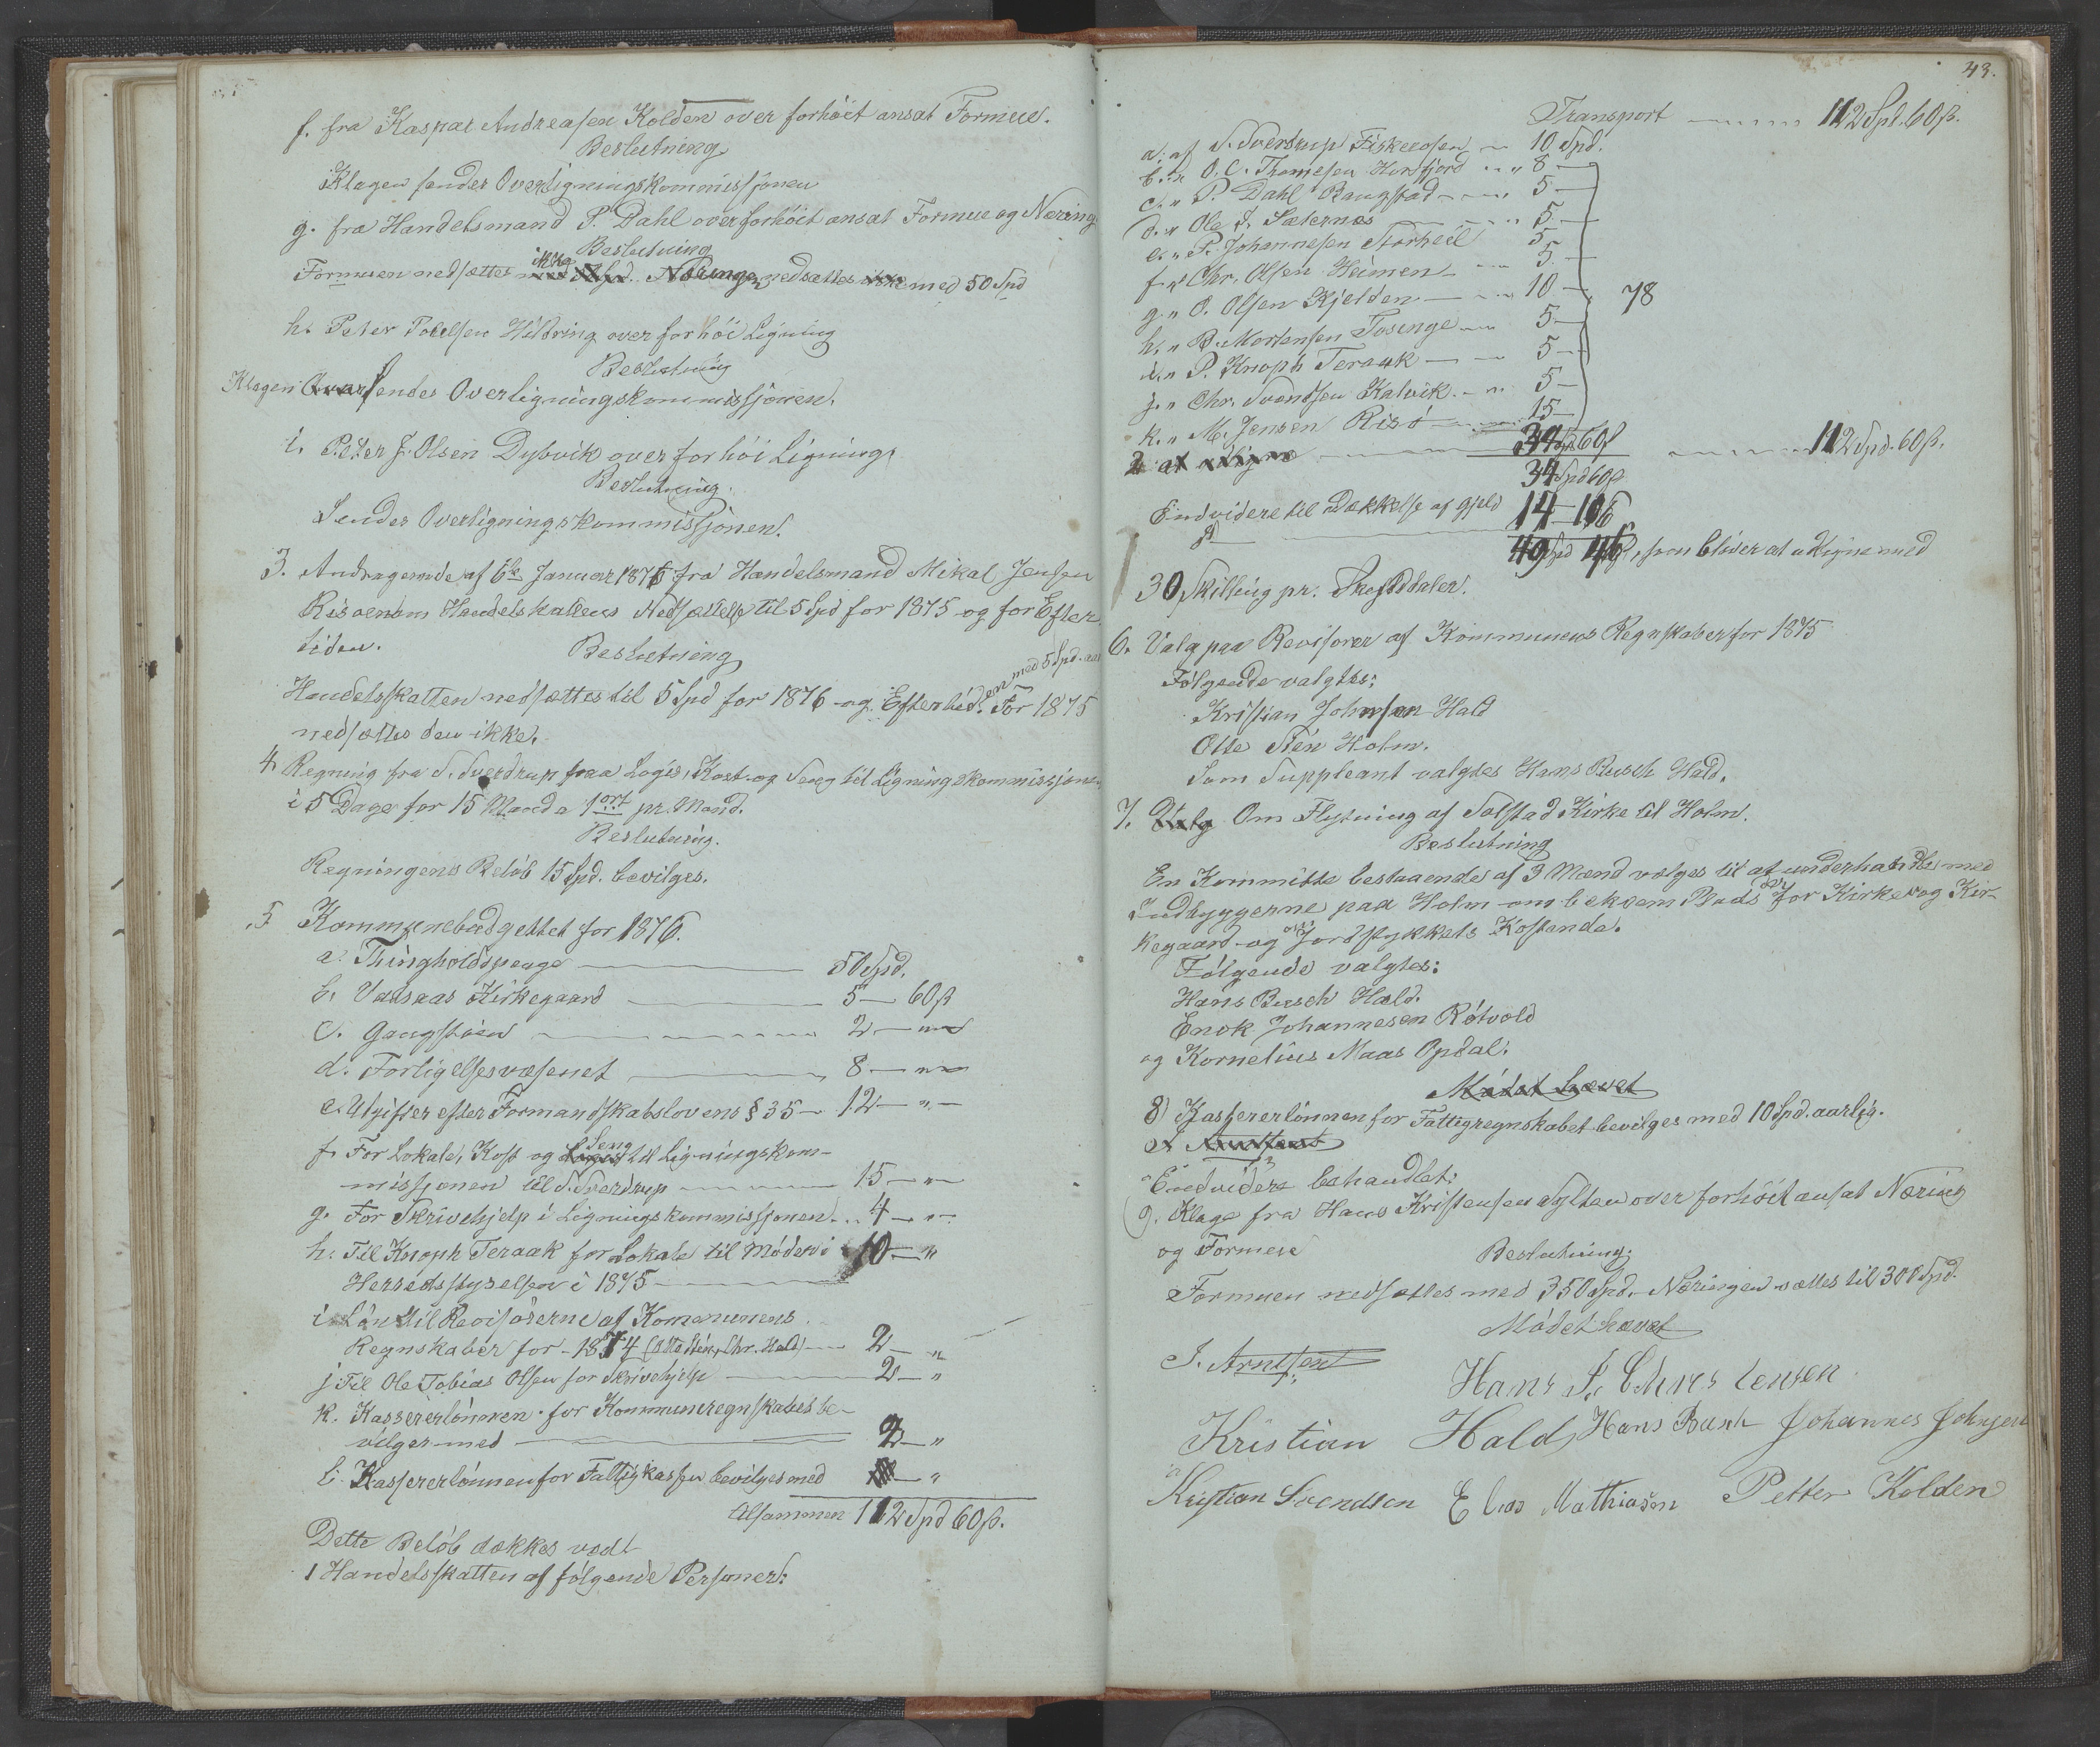 f. fra Kaspar Andreasen Kolden over forhöit ansat Formue.
Beslutning
Klagen sendes Overligningskommissjonen
g. fra Handelsmand P. Dahl over forhöit ansat Formue og Næring
Beslutning
Formuen nedsættes ikke Næringen nedsættes med 50 Spd
h. Peter Poelsen Hildring over for höi Ligning
Beslutning
Klagen sendes Overligningskommissjonen.
i. Peter J. Olsen Dybvik over for höi Ligning
Beslutning.
Sendes Overligningskommissjonen.
3. Andragende af 6te Januar 1876 fra Handelsmand Mikal Jensen
Risö om Handelskattens Nedsættelse til 5 Spd for 1875 og for Efter
tiden.
Beslutning
Handelsskatten nedsættes til 5 Spd for 1876 og Eftertid. For 1875
nedsættes den ikke.
4. Regning fra S. Sverdrup paa Logis, Kost og Seng til Ligningskommissjonen
i 5 Dage for 15 Mand a 1 ort pr. Mand.
Beslutning.
Regningens Belöb 15 Spd. bevilges.
5 Kommunebudgettet for 1876.
a. Thingholdspenge 50 Spd.
b. Vassaas Kirkegaard 5 — 60 ß
c. Gangstien 2 — "
d. Forligelsesvæsenet 8 — "
e. Utgifter efter Formandskabslovens § 35 — 12 — " —
f. For Lokale, Kost og Seng til Ligningskom-
missjonen til S. Sverdrup 15 — " —
g. For Skrivehjelp i Ligningskommissjonen 4 — "
h. Til Knoph Teraak for Lokale til Möder i 10 — "
Herredsstyrelsen i 1875
i Lön til Revisorerne af Kommunens
Regnskaber for 1874 (Otte Stén, Chr. Hald) 2 — "
j Til Ole Tobias Olsen for Skrivehjelp 2 — "
k. Kassererlönnen for Kommuneregnskabet be-
vilges med 2 — "
l. Kassererlönnen for Fattigkassen bevilges med — "
Alsammen 112 Spd 60 ß.
Dette Belöb dækkes ved
1 Handelsskatten af fölgende Personer:
43.
Transport 112 Spd. 60 ß.
a. af S. Sverdrup Fiskeosen 10 Spd.
b. " O. C. Thomesen Horsfjord " 8 —
c. " P. Dahl Bangstad 5 —
d. " Ole J. Sæternæs 5 —
e. " P. Johannesen Storheil 5
f. " Chr. Olsen Heimen 5 —
g. " O. Olsen Kjelden 10 — 78
h. " B. Mortensen Tosinge 5 —
i. " P. Knoph Teraak 5 —
j. " Chr. Svendsen Kalvik 5 —
k. " M. Jensen Risö 15 —
2 at utligne 34 Spd 60 ß 112 Spd. 60 ß.
34 Spd 60 ß
Endvidere til Dækkelse af Gjeld 14 — 106
49 Spd 46 ß, som bliver at utligne med
30 Skilling pr. Skatdaler.
6. Valg paa Revisorer af Kommunens Regnskaber for 1875
Fölgende valgtes:
Kristian Johnsen Hald
Otte Stén Holm.
Som Suppleant valgtes Hans Busch Hald.
7. Valg Om Flytning af Solstad Kirke til Holm.
Beslutning
En Kommitte bestaaende af 3 Mænd vælges til at underhandle med
Indbyggerne paa Holm om bekvem Plads for Kirke og Kir-
kegaard og Jordstykkets Kostende.
Fölgende valgtes:
Hans Busch Hald.
Enok Johannesen Rötvold
og Kornelius Maas Opdal.
Mödet hævet
8) Kassererlönnen for Fattigregnskabet bevilges med 10 Spd. aarlig.
Endvidere behandlet:
9. Klage fra Hans Kristensen Sylten over forhöit ansat Næring
og Formue
Beslutning.
Formuen nedsættes med 350 Spd. Næringen sættes til 300 Spd.
Mödet hævet
J. Arntsen
Kristian Hald Hans Busch Johannes Johnsen
Kristian Svendsen Elias Mathiasen Petter Kolden